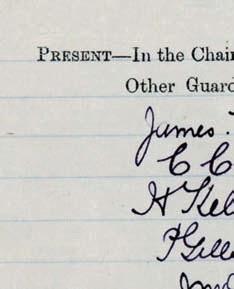 PRESENT—In the Chair
Other Guard
James.
C C
H Kel
P Gille